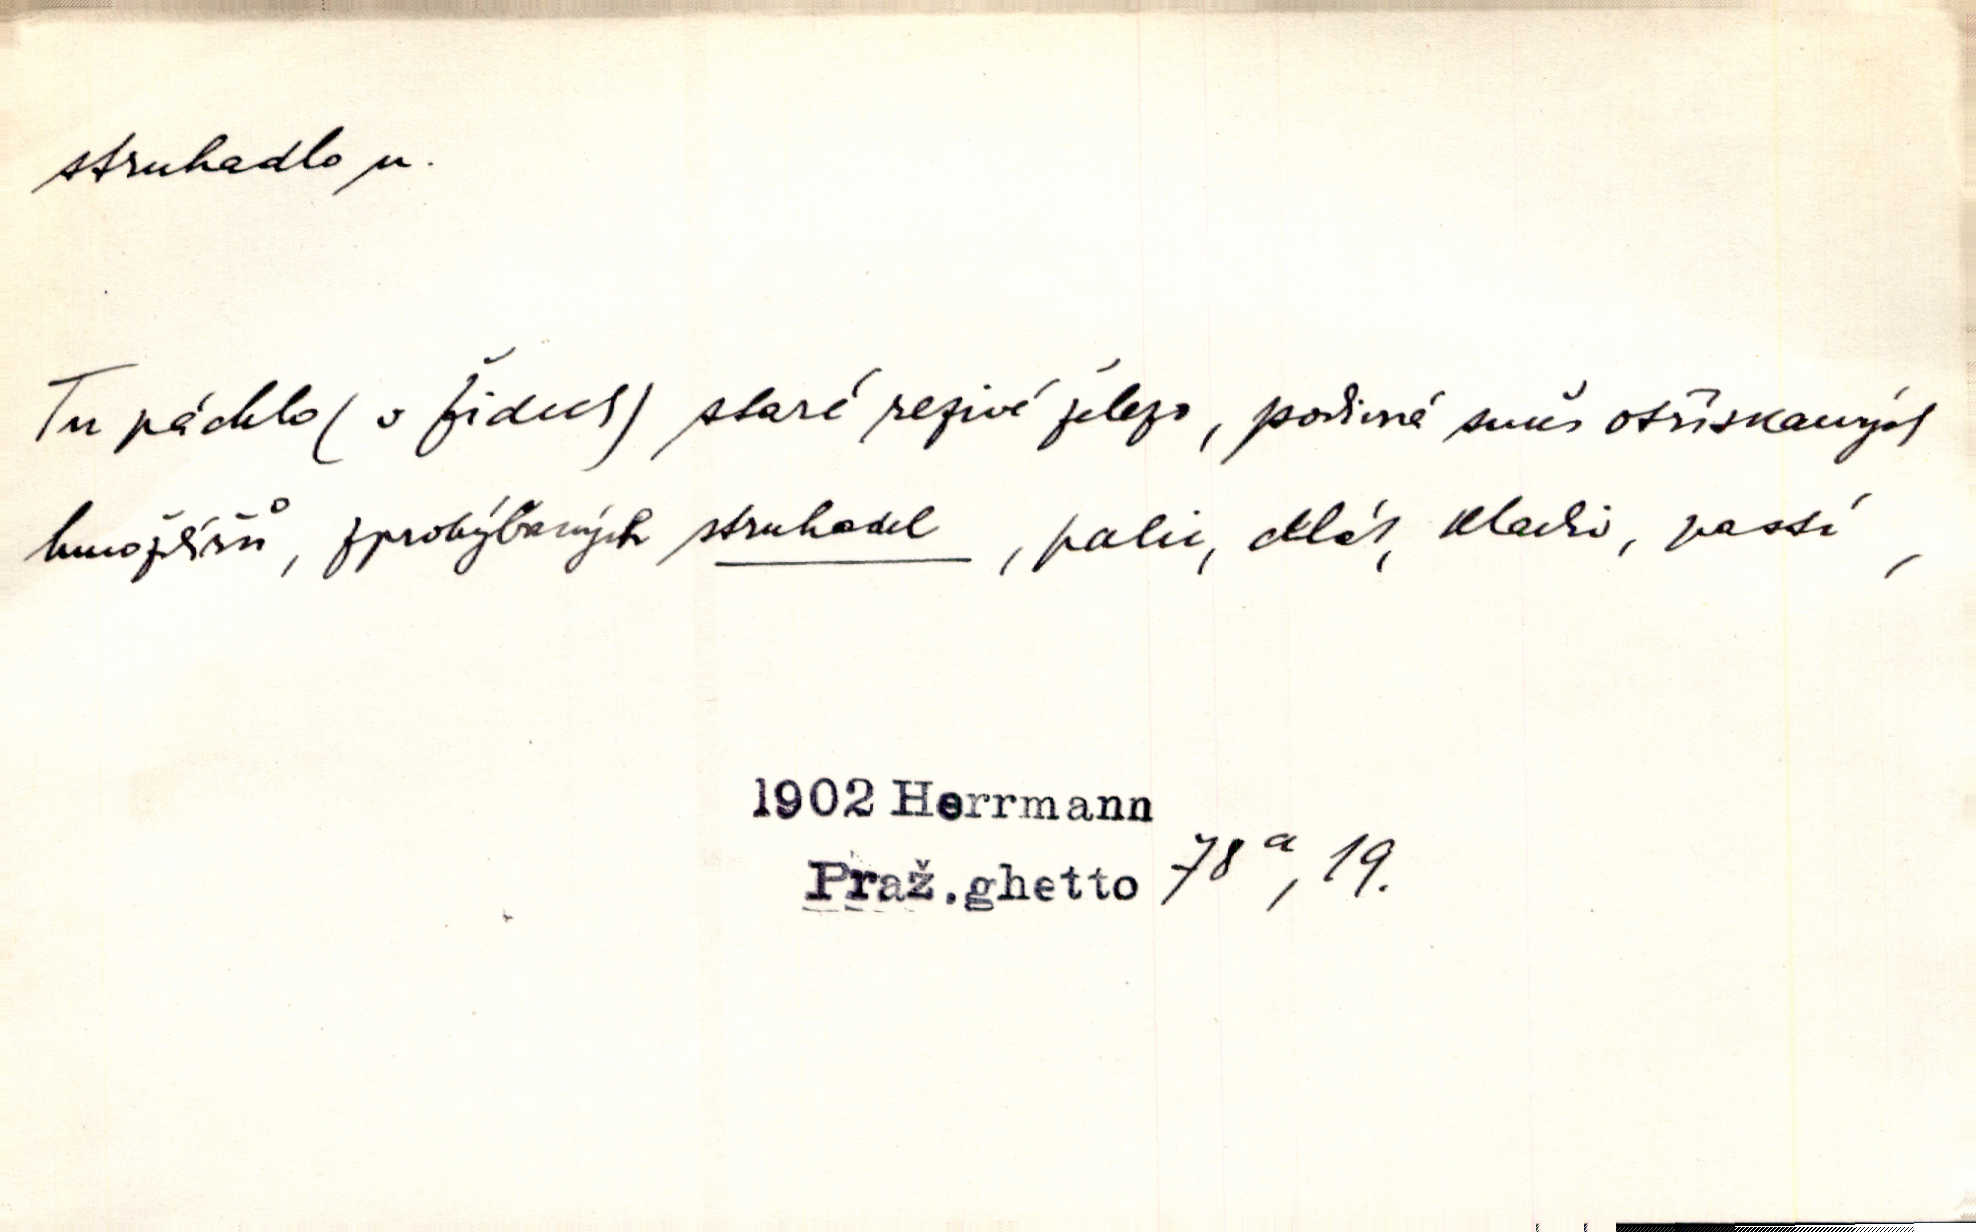 struhadlo n.
Tu páchlo (v Židech) staré rezivé železo, podivná směs otřískaných
hmoždířů, zprohýbaných struhadel, palic, dlát, kladiv, pastí,
1902 Herrmann
Praž.ghetto 78ª, 19.